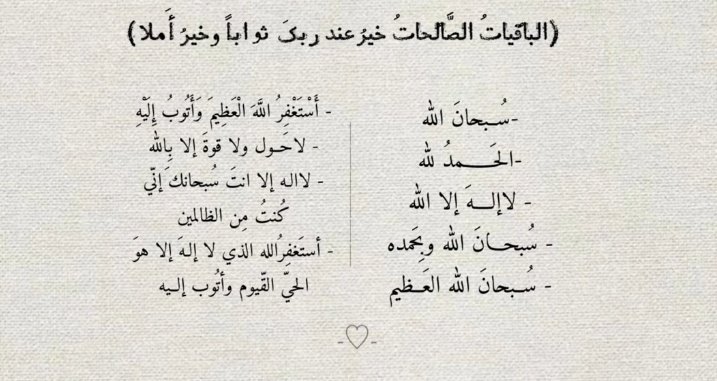 (الباقياتُ الصَّالحاتُ خيرُ عند ربکَ ثواباً وخيرُ أَملا)
-سُبحانَ الله
-الحَمدُ لله
- لاإلهَ إلا الله
- سُبحانَ الله وبِحَمده
- سُبحانَ الله العَظيم
- أَسْتَغْفِرُ اللَّهَ الْعَظِيمَ وَأَتُوبُ إِلَيْهِ
- لاحَول ولا قوةَ إلا بِالله
- لااله إلا انتَ سُبحانك إنّي
كُنتُ مِن الظالمين
- أستَغفِرُالله الذي لا إلهَ إلا هوَ
الحيّ القّيوم وأتُوب إليه